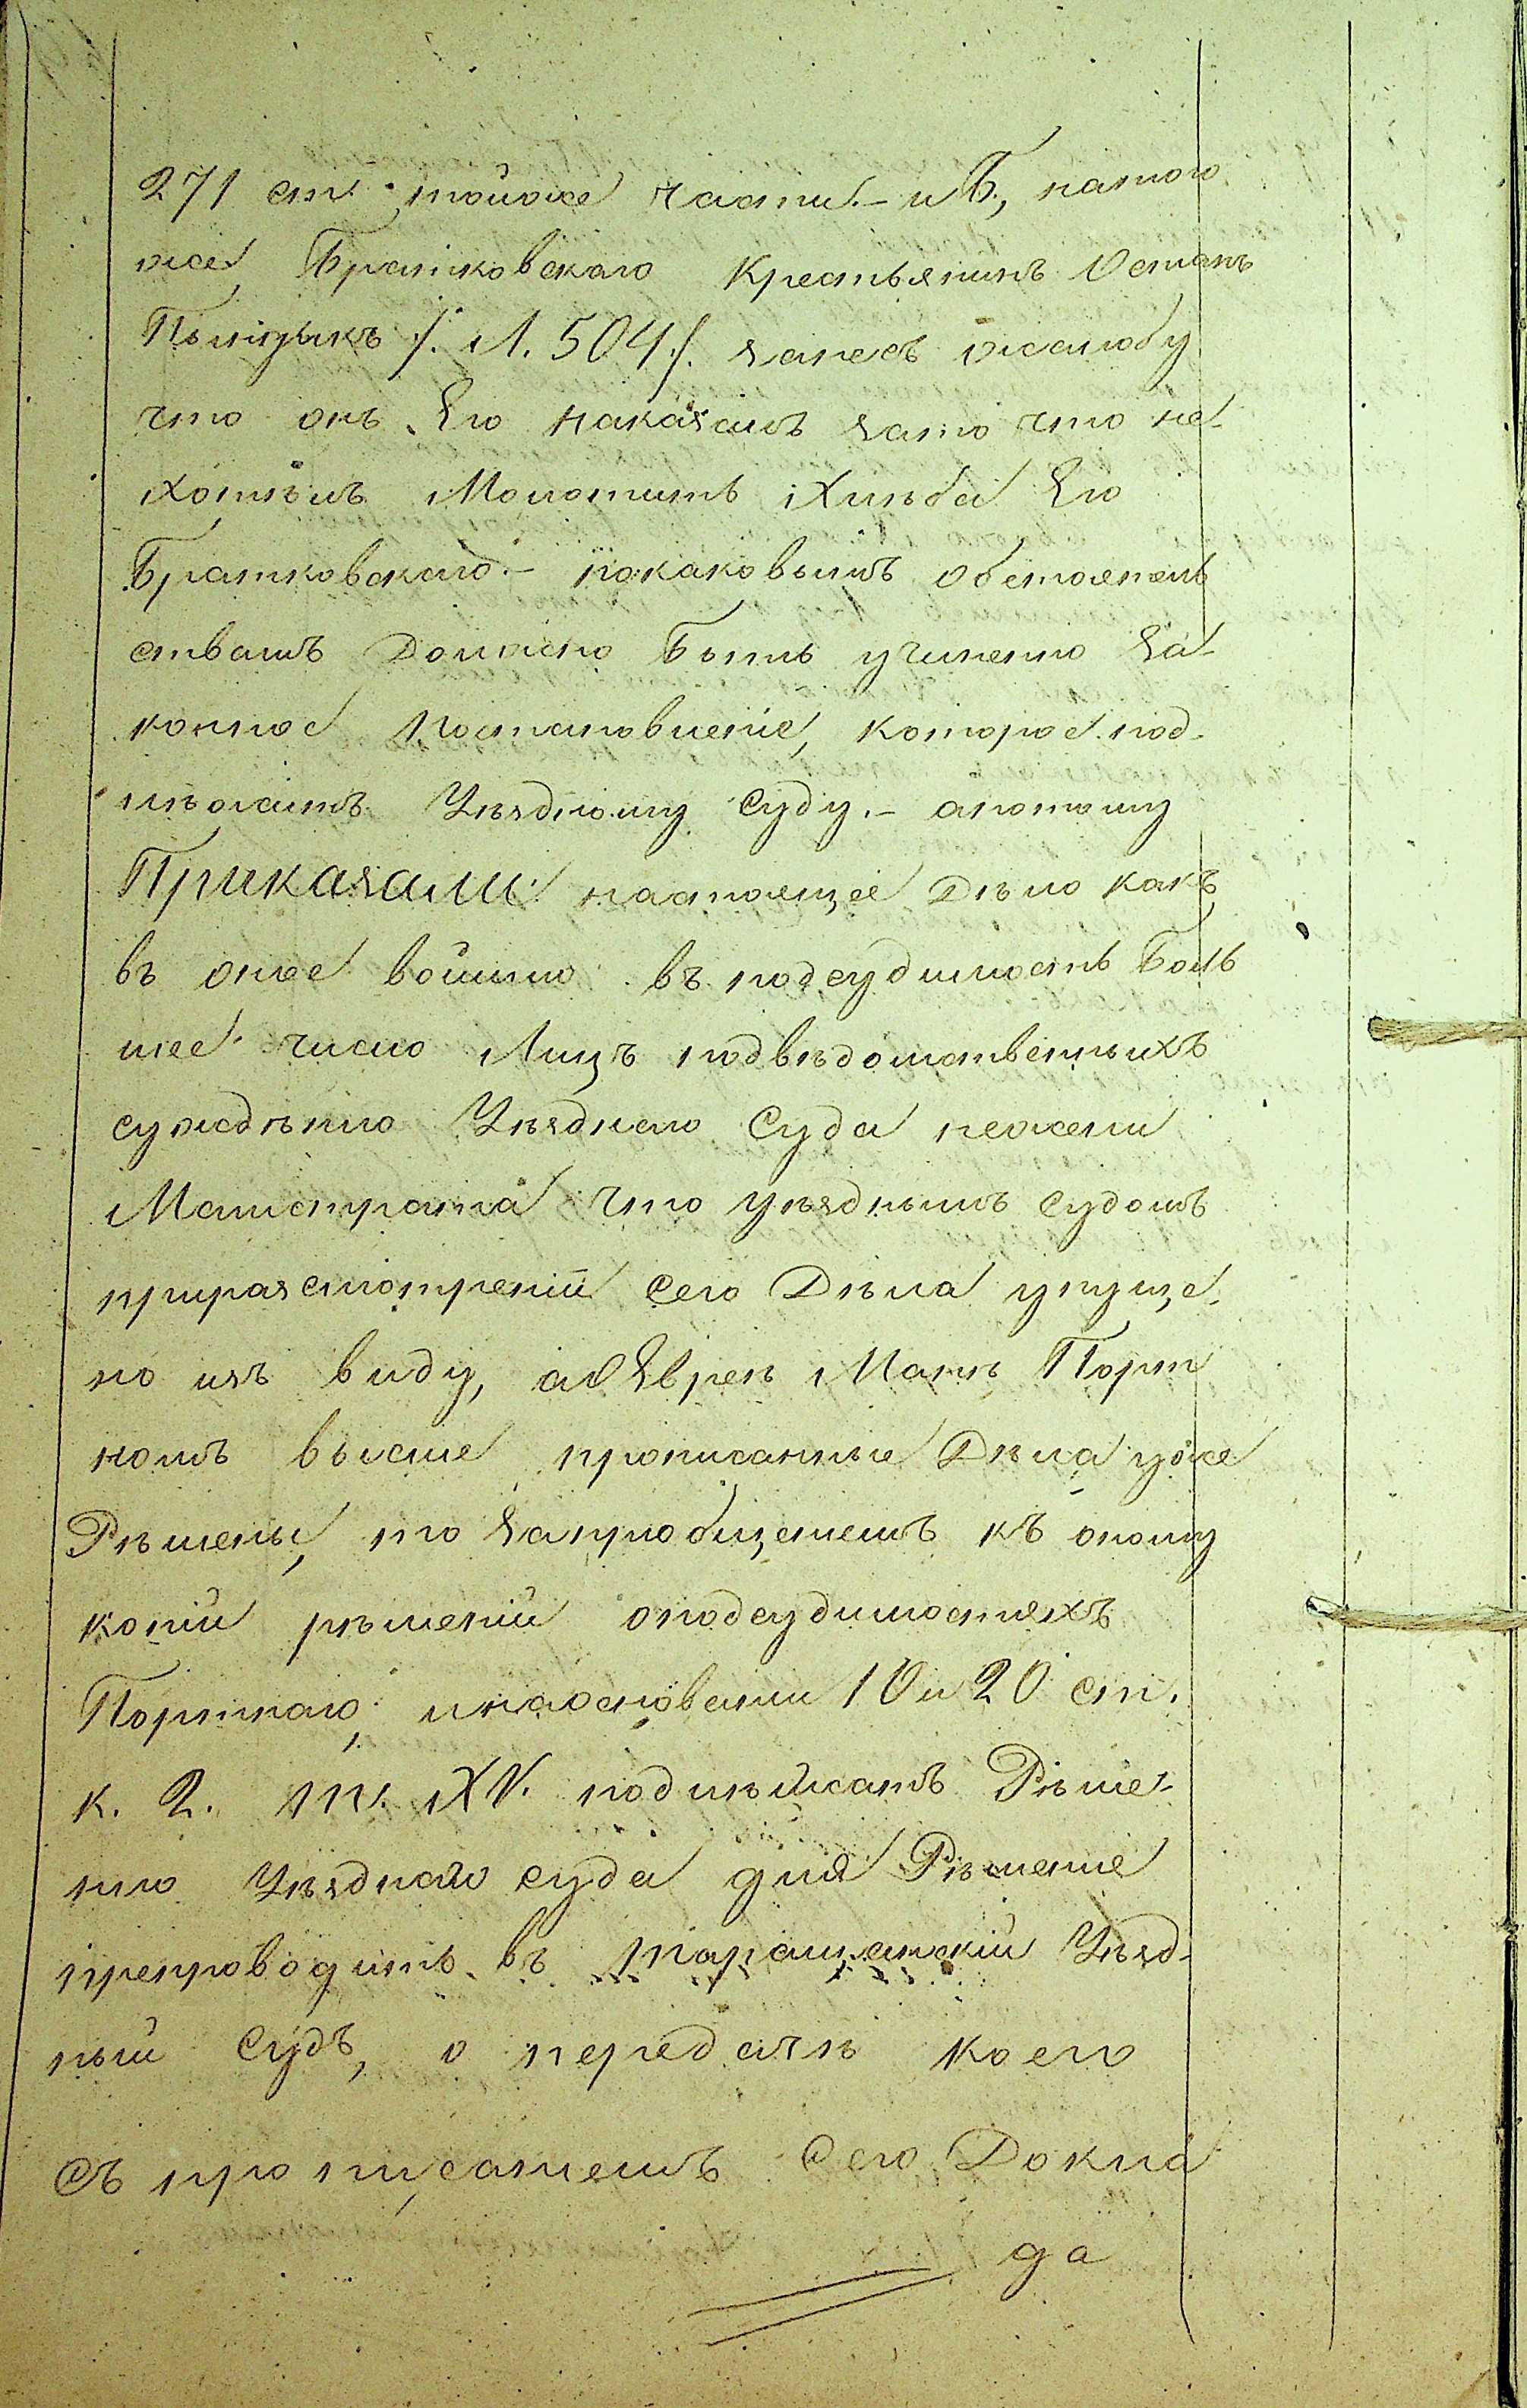 271 ст. тойже части. – и Б., натого
же Братковскаго Крестьянинъ Остапъ
/. Л. 504 ./. занесъ жалобу
что онъ Его наказалъ зато что не-
хотѣлъ Молотить Хлѣба Его
Братковскаго. – покаковымъ обстоятель
ствамъ Должно Быть учинено за-
конное постановленіе, которое под-
лѣжитъ Уѣздному Суду. – апотому
Приказали: настоящее Дѣло какъ
въ оное войшло въ подсудимость Боль
шее число Лицъ подвѣдомственныхъ
сужденію Уѣзднаго Суда нежели
Магистрата что уѣзднымъ судомъ
приразсмотреніи сего Дѣла упуще-
но изъ виду, а о Эвреѣ Мотѣ Порт
номъ высше прописанные Дѣла уже
Рѣшены, по запріобщенемъ къ оному
копіи рѣшеній оподсудимостяхъ
Портнаго, инаоснованіи 10 и 20 ст.
к. 2. т. XV. подлѣжитъ Рѣше-
нію Уѣзднаго суда для Рѣшеніе
препроводить въ Таращанскій Уѣзд-
ный Судъ, о передачѣ коего
съ прописанемъ сего Докла
да